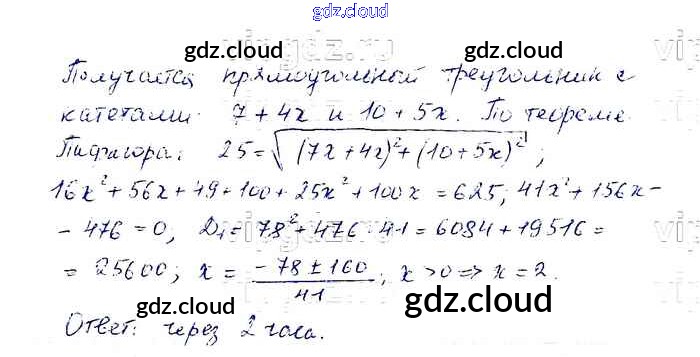 gdz.cloud
gdz.cloud gdz.cloud
Получается прямоугольный треугольник с
катетами 7 + 4x и 10 + 5x. По теореме
gdz.cloud gdz.cloud
Пифагора: 25 = √(7x + 4x)² + (10 + 5x)² ;
16x² + 56x + 49 + 100 + 25x² + 100x = 625; 41x² + 156x -
- 476 = 0, D₁ = 78² + 476 · 41 = 6084 + 19516 =
= 25600; x = (-78 ± 160)/41 ; x > 0 => x = 2.
gdz.cloud gdz.cloud
Ответ: через 2 часа.